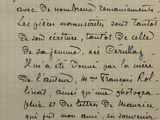 avec de nombreux remaniements.
Les pièces manuscrites sont tantôt
de son écriture, tantôt de celle
de sa femme, née Cerullaz
Il m'a été donné par la mère
de l'auteur, Mme François Rol-
linat, ainsi qu'une photogra-
phie et des lettres de Maurice
qui fut mon ami, en souvenir